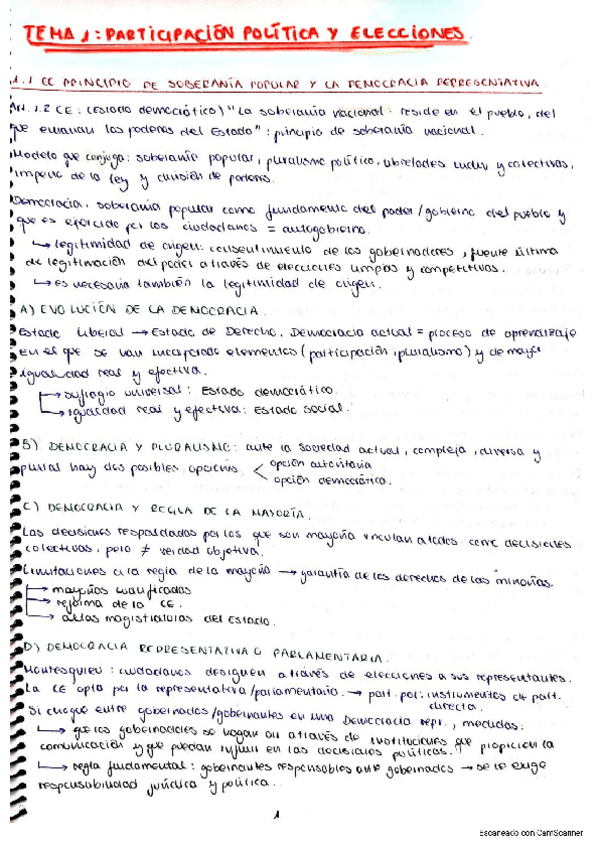 TEMA 1: PARTICIPACIÓN POLÍTICA Y ELECCIONES.
1.1 EL PRINCIPIO DE SOBERANÍA POPULAR Y LA DEMOCRACIA REPRESENTATIVA.
Art. 1.2 CE: (Estado democrático) "La soberanía nacional reside en el pueblo, del
que emanan los poderes del Estado": principio de soberanía nacional.
Modelo que conjuga: soberanía popular, pluralismo político, libertades indiv y colectivas,
imperio de la ley y división de poderes.
Democracia: soberanía popular como fundamento del poder/gobierno del pueblo y
que es ejercido por los ciudadanos = autogobierno.
↳ legitimidad de origen: consentimiento de los gobernadores, fuente última
de legitimación del poder a través de elecciones limpias y competitivas.
↳ es necesaria también la legitimidad de origen.
A) EVOLUCIÓN DE LA DEMOCRACIA.
Estado liberal → Estado de Derecho. Democracia actual = proceso de aprendizaje
en el que se van incorporando elementos (participación, pluralismo) y de mayor
igualdad real y efectiva.
→ sufragio universal: Estado democrático.
→ igualdad real y efectiva: Estado social.
B) DEMOCRACIA Y PLURALISMO: ante la sociedad actual, compleja, diversa y
plural hay dos posibles opciones < opción autoritaria
opción democrática.
C) DEMOCRACIA Y REGLA DE LA MAYORÍA.
Las decisiones respaldadas por los que son mayoría vinculan a todos como decisiones
colectivas, pero ≠ verdad objetiva.
Limitaciones a la regla de la mayoría → garantía de los derechos de las minorías.
→ mayorías cualificadas
→ reforma de la CE.
→ altas magistraturas del Estado.
D) DEMOCRACIA REPRESENTATIVA O PARLAMENTARIA.
Montesquieu: ciudadanos designen a través de elecciones a sus representantes.
La CE opta por la representativa/parlamentaria. → part. por: instrumentos de part.
directa.
Si choque entre gobernados/gobernantes en una Democracia repr., medidas:
↳ que los gobernados se hagan oír a través de instituciones que propicien la
comunicación y que puedan influir en las decisiones políticas.
↳ regla fundamental: gobernantes responsables ante gobernados → se le exige
responsabilidad jurídica y política.
1
Escaneado con CamScanner